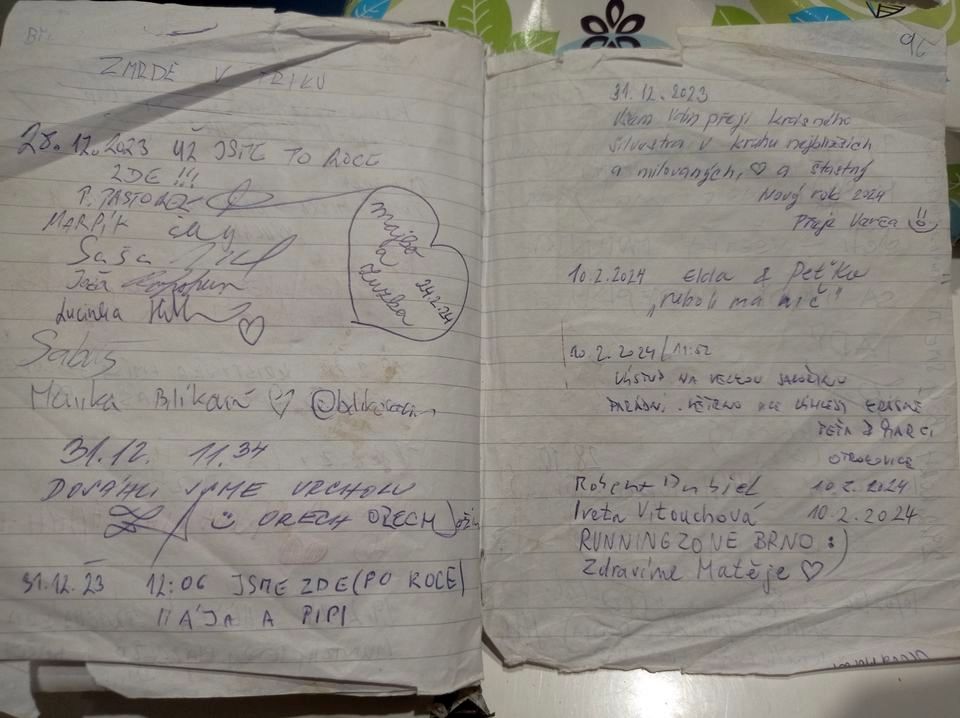 ZMRDE V TRIKU
28.12.2023 UŽ JSME TO ROCE
ZDE !!!
P. PASTOREK
MARPÍK
Saša
Joža
Lucinka ♡
Sabuš
Majka
a
Zuzka
24.2.24
Maňka ♡
31.12. 11.34
DOSÁHLI JSME VRCHOLU
☺ OŘECH OŘECH
31.12.23 12:06 JSME ZDE (PO ROCE)
MÁJA A PIPI
96
31.12.2023
Všem Vám přeji krásného
silvestra v kruhu nejbližších
a milovaných, ♡ a šťastný
Nový rok 2024
Přeje Verča ☺
10.2.2024 Elda & Peťka
"nebolí ma nič"
10.2.2024 / 11:52
VÝSTUP NA VELKOU JAVOŘINU
PARÁDNÍ. VĚTRNO VÝHLEDY KRÁSNÉ
PEŤA & MARCI
OTROKOVICE
Robert 10.2.2024
Iveta Vitouchová 10.2.2024
RUNNINGZONE BRNO :)
Zdravíme Matěje ♡